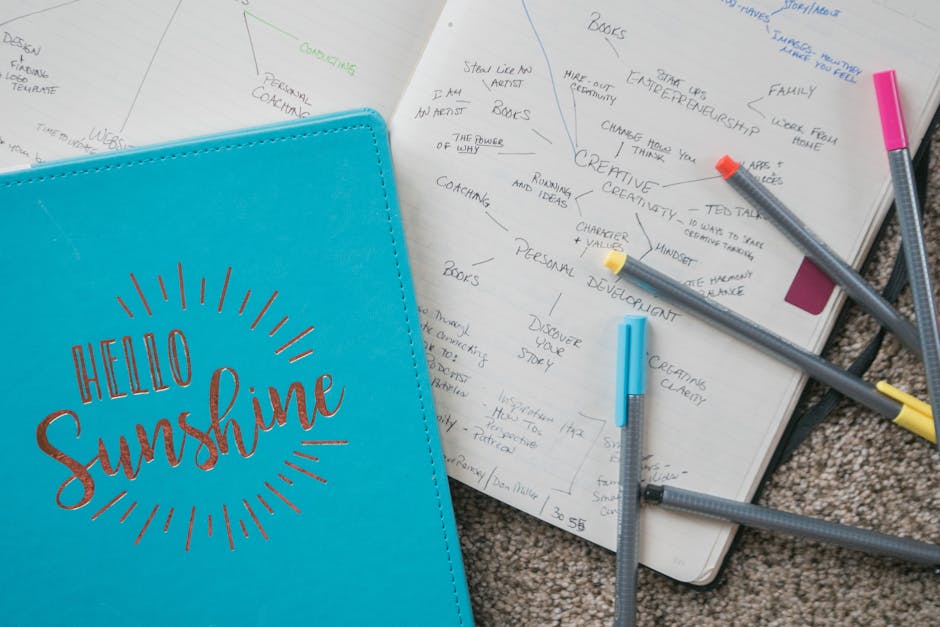 HELLO
Sunshine
CONDUCTING
DESIGN
+
FINDING
LOGO
TEMPLATE
PERSONAL
COACHING
WEBSITE
STORY/ABOUT
IMAGES - HOW THEY
MAKE YOU FEEL
BOOKS
STEAL LIKE AN
ARTIST
HIRE-OUT
CREATIVITY
START UPS
ENTREPRENEURSHIP
FAMILY
WORK FROM
HOME
I AM
AN ARTIST
BOOKS
THE POWER
OF WHY
CHANGE HOW YOU
THINK
CREATIVE
CREATIVITY
APPS +
RUNNING
AND IDEAS
TED TALK
10 WAYS TO SPARK
CREATIVE THINKING
COACHING
CHARACTER
+ VALUES
MINDSET
HARMONY
BALANCE
PERSONAL
DEVELOPMENT
BOOKS
DISCOVER
YOUR
STORY
CREATING
CLARITY
Through
Connecting
TO:
Inspiration
- HOW TO-
Perspective
- Patreon
30